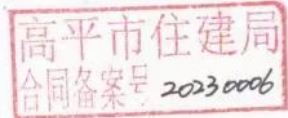 高平市住建局
合同备案号 20230006